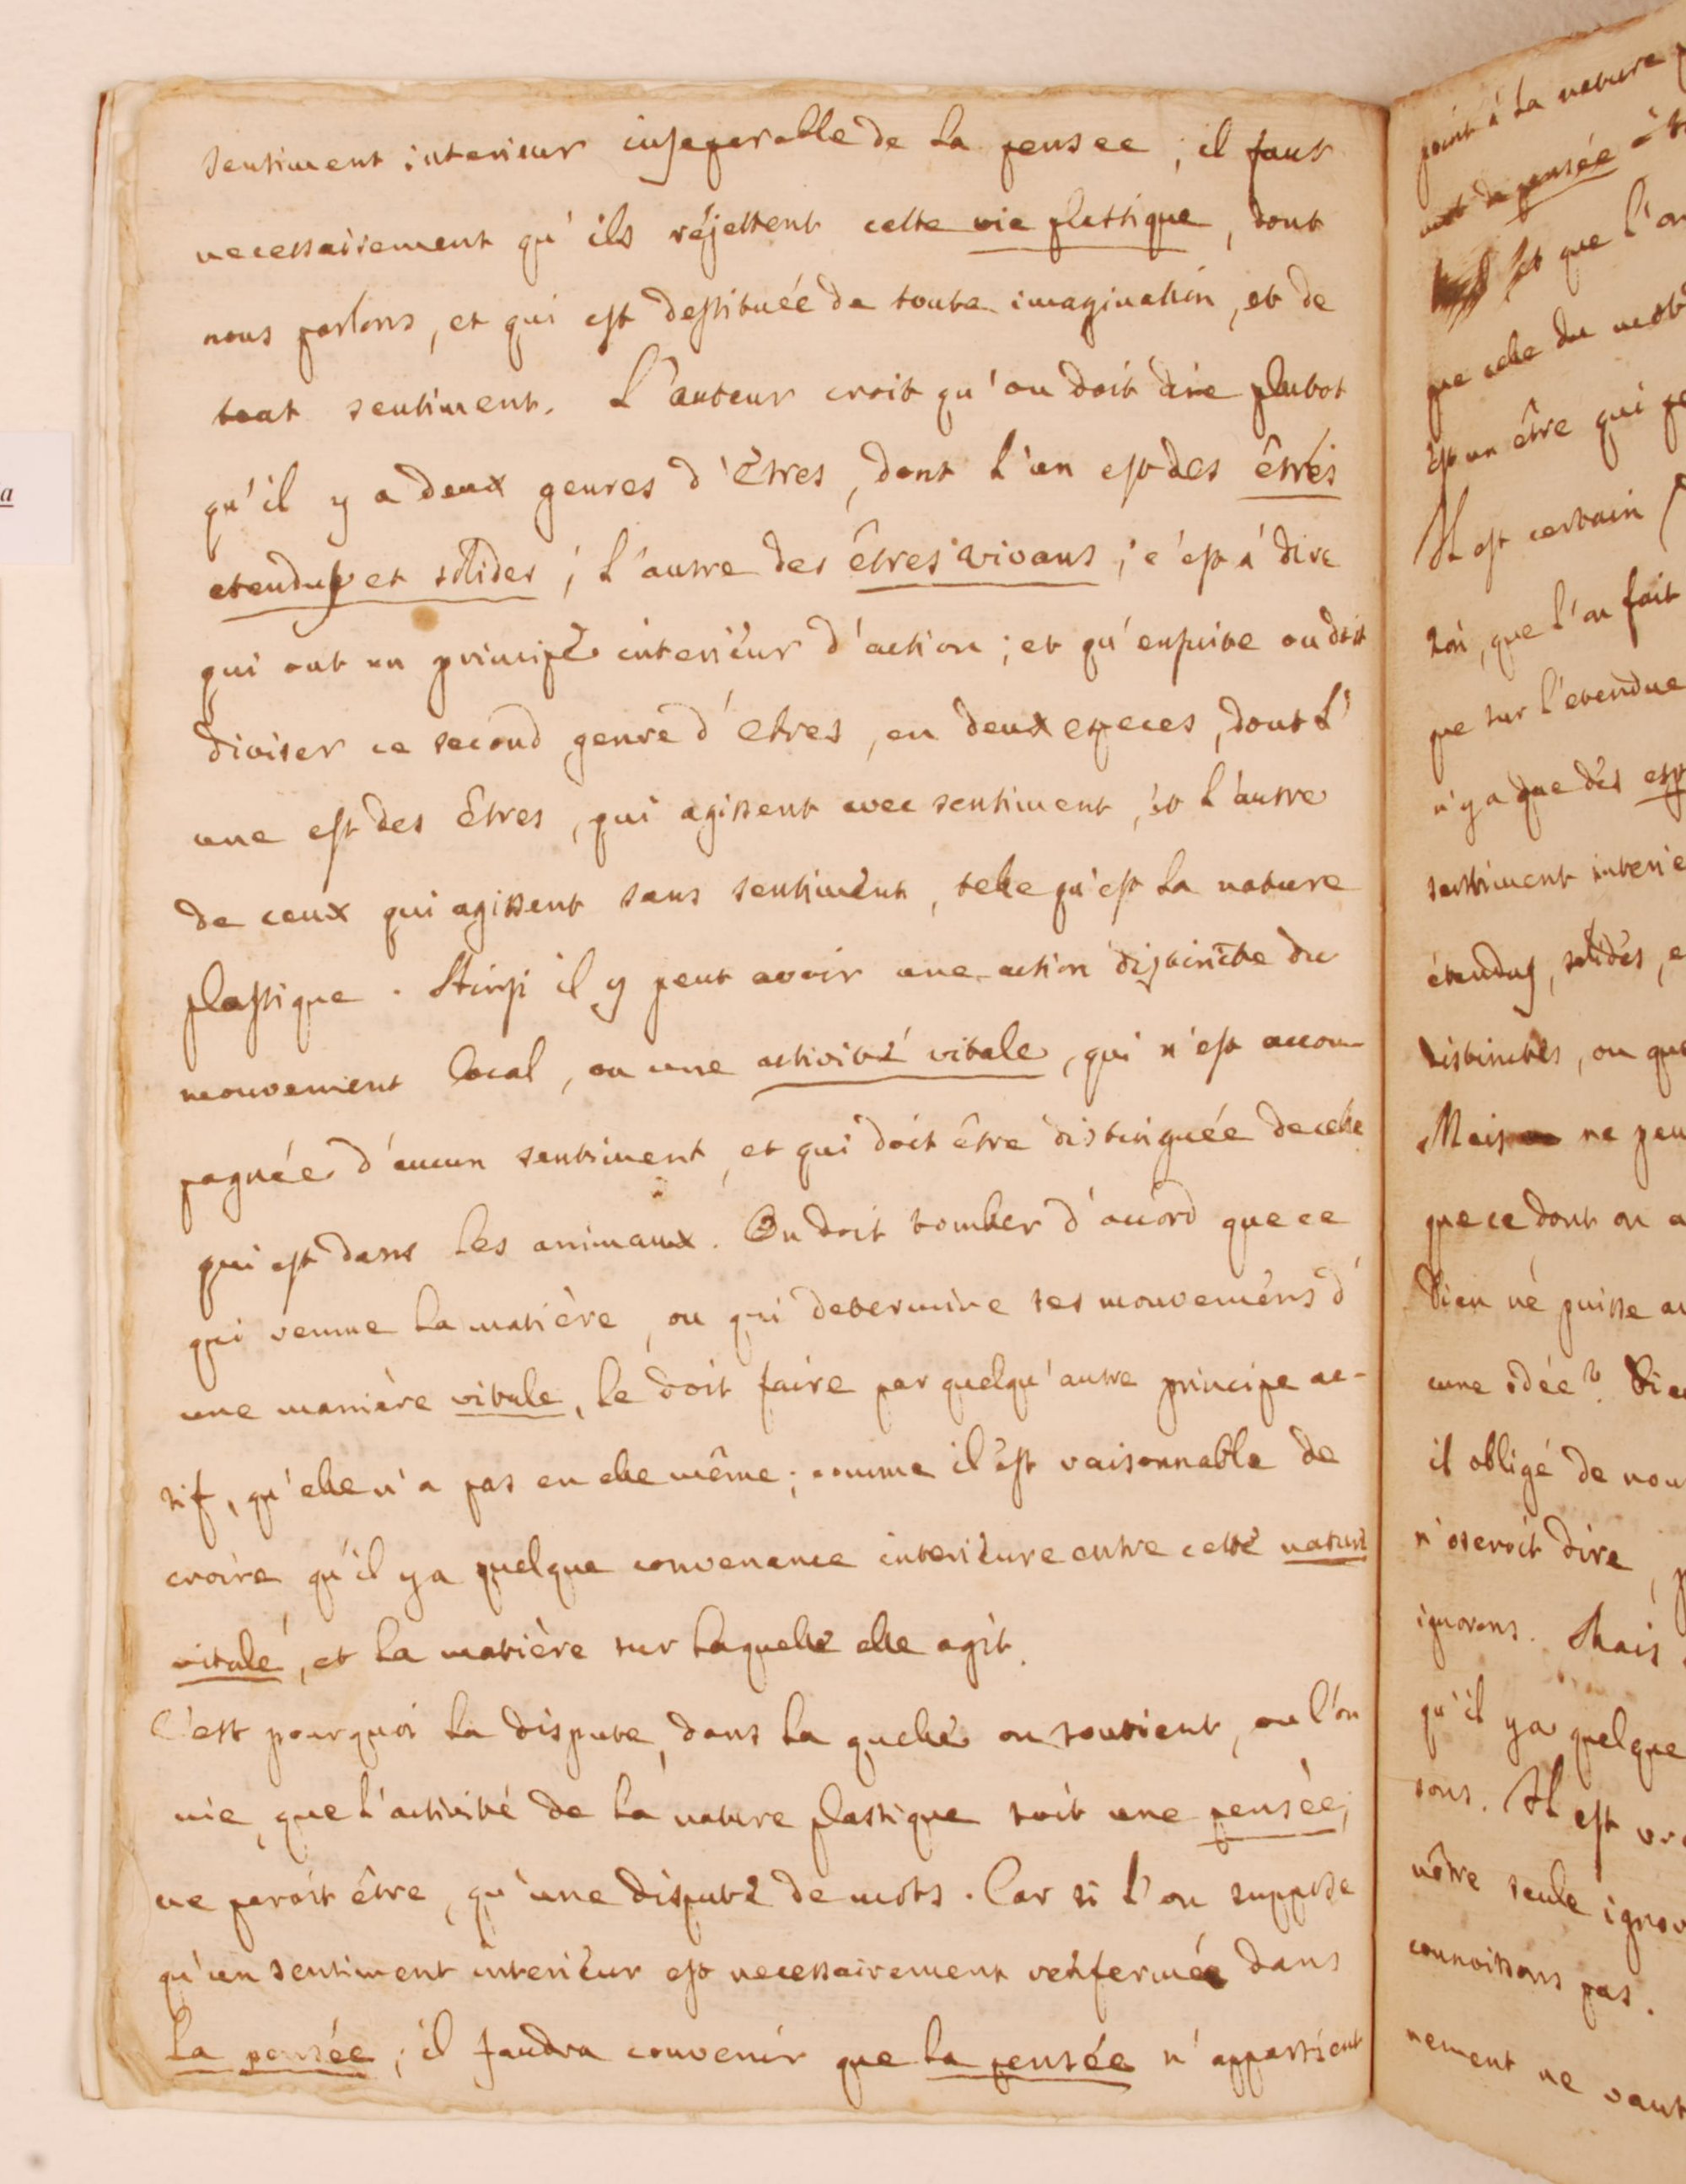 sentiment interieur inseparable de la pensee ; il faut
necessairement qu'ils réjettent cette vie plastique, dont
nous parlons, et qui est destituée de toute imagination, et de
tout sentiment. L'auteur croit qu'on doit dire plutot
qu'il y a deux genres d'Etres, dont l'un est des êtres
etendus et solides ; l'autre des êtres vivans ; c'est à dire
qui ont un principe interieur d'action ; et qu'ensuite on doit
diviser ce second genre d'etres, en deux especes, dont l'
une est des Etres, qui agissent avec sentiment, et l'autre
de ceux qui agissent sans sentiment, telle qu'est la nature
plastique. Ainsi il y peut avoir une action distincte du
mouvement local, ou une activité vitale, qui n'est accom-
pagnée d'aucun sentiment, et qui doit être distinguée de celle
qui est dans les animaux. On doit tomber d'accord que ce
qui remue la matière, ou qui determine ses mouvemens d'
une manière vitale, le doit faire par quelqu'autre principe ac-
tif, qu'elle n'a pas en elle même ; comme il est raisonnable de
croire qu'il y a quelque convenance interieure entre cette nature
vitale, et la matière sur laquelle elle agit.
C'est pourquoi la dispute, dans la quelle on soutient, ou l'on
nie, que l'activité de la nature plastique soit une pensée,
ne paroit être, qu'une dispute de mots. Car si l'on suppose
qu'un sentiment interieur est necessairement renfermé dans
la pensée ; il faudra convenir que la pensée n'appartient
point à la nature
mot de pensée à
et que l'on
que celle du mot
est un être qui
Il est certain
que l'on fait
que sur l'etendue
n'y a que des
sentiment interie
étendus, solides, e
distinctes, ou que
Mais ne peu
que ce dont on a
Dieu ne puisse a
cune idée ? Dieu
il obligé de nou
n'oseroit dire,
ignorons. Mais
qu'il y a quelque
sons. Il est vra
nôtre seule igno
connoissons pas.
nement ne vaut